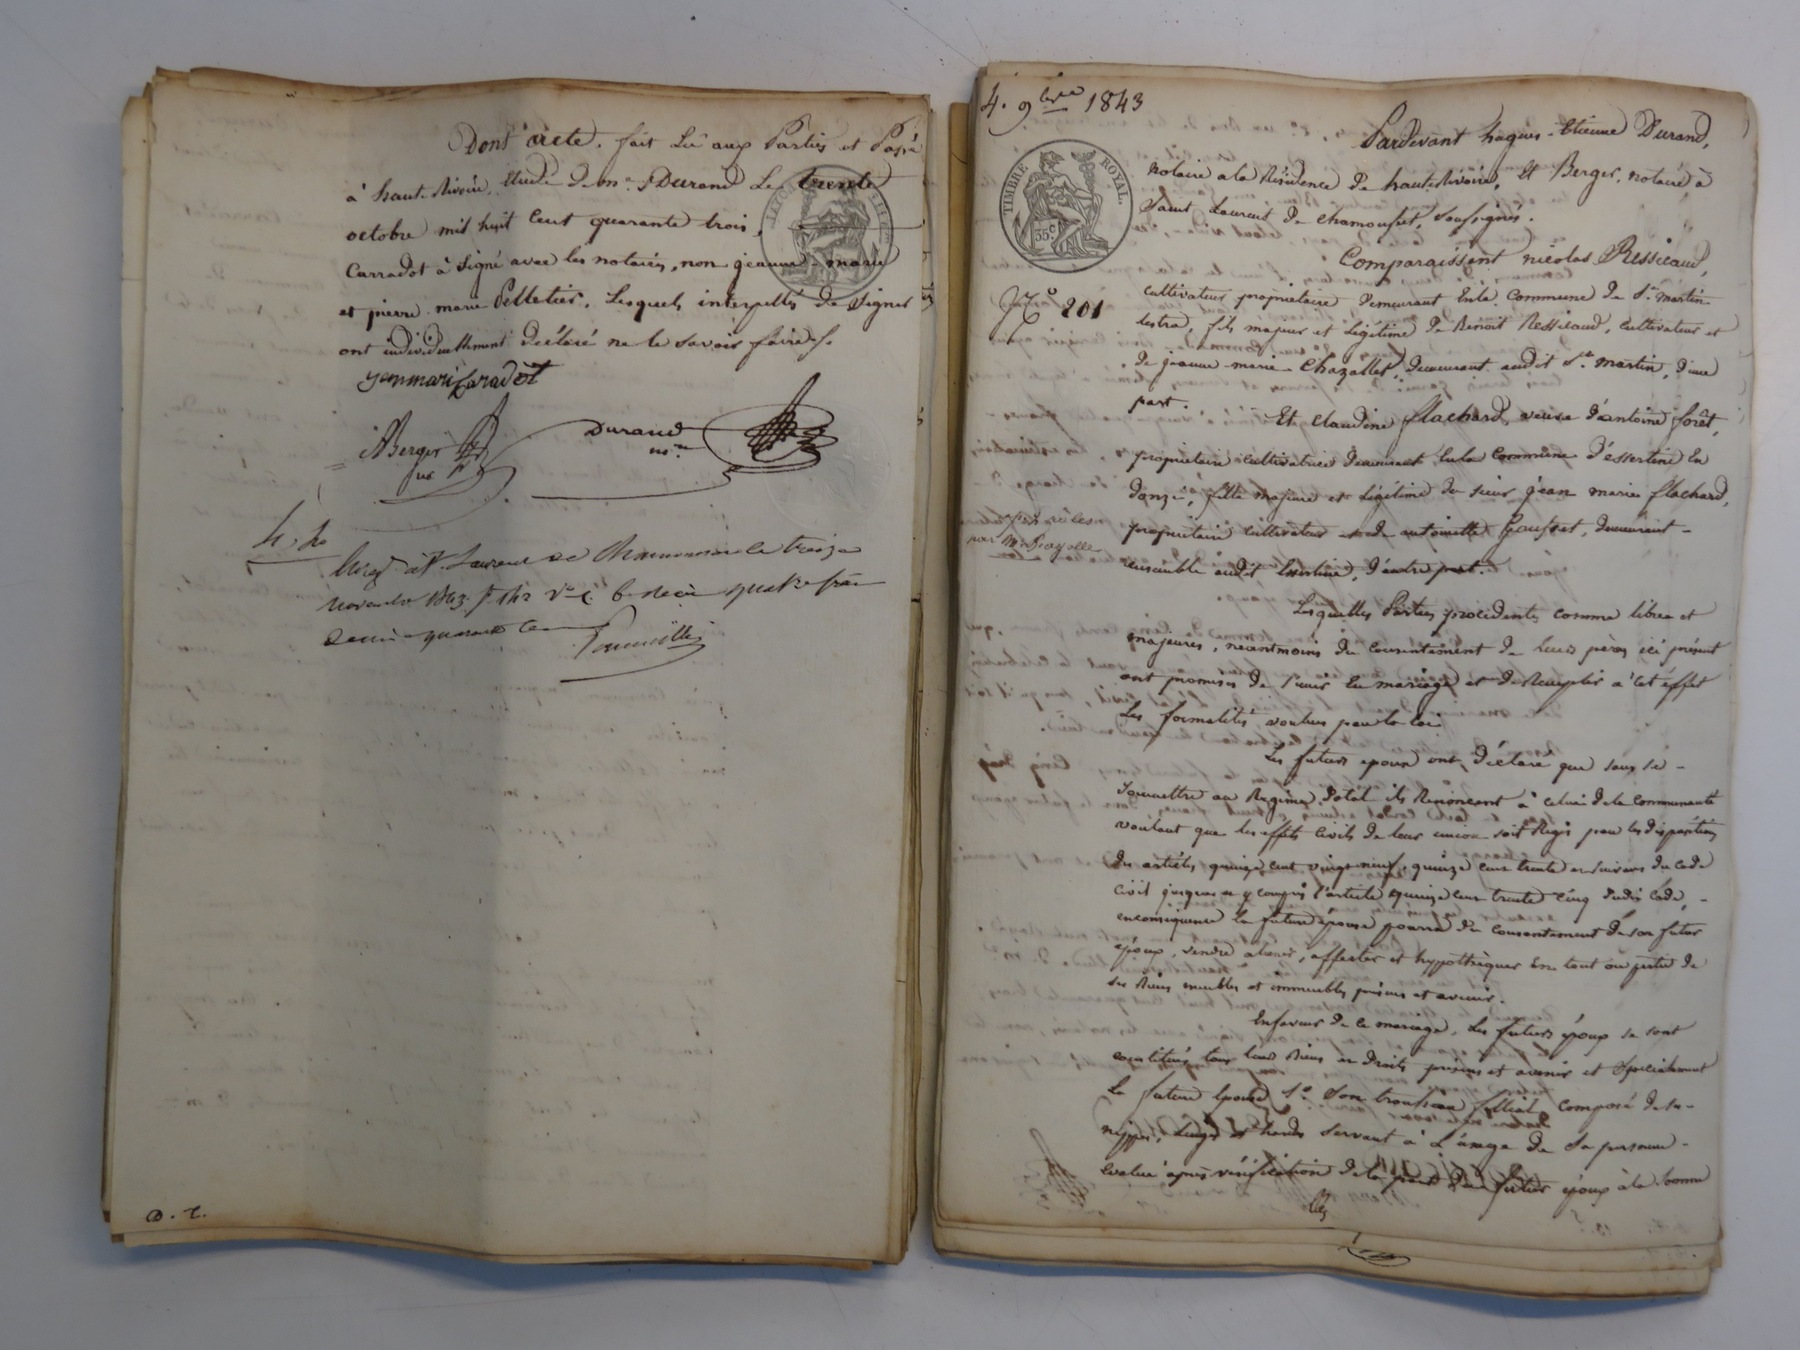 Dont acte. fait Lû aux Parties et Passé
à haute Rivoire, Etude de me. Durand Le trente
octobre mil huit Cent quarante trois,
Carradot à Signé avec les notaires, non jeanne-marie
et pierre marie Pelletier, Lesquels interpellés de signer
ont individuellement déclaré ne le savoir faire.
jeanmari Caradot
Berger
Durand
nre
4,40
Enreg. à St Laurent de Chamousset le treize
novembre 1843. fo 142 Vo C. 6. reçu quatre francs
décime quarante cent
D. C.
4. 9bre 1843
TIMBRE ROYAL
35 c
No 201
Pardevant hagues-Etienne Durand,
notaire a la Résidence de hauteRivoire, Et Berger, notaire à
Saint Laurent de Chamousset, Soussignés.
Comparaissent nicolas Ressicaud,
cultivateur propriétaire demeurant En la Commune de St. Martin
lestra, fils majeur et Légitime de Benoit Ressicaud, Cultivateur et
de jeanne-marie Chazallet, demeurant audit St. martin, d'une
part.
Et Claudine flachard, veuve d'antoine forêt,
propriétaire cultivatrice demeurant En la Commune d'essertine En
donzi, fille Majeure et Légitime de sieur jean marie flachard,
propriétaire Cultivateur et de antoinette Gousset, demeurant-
ensemble audit Essertine, d'autre part.
Lesquelles Parties procédantes comme libres et
majeures, neantmoins du Consentement de leurs pères ici présent
ont promises de s'unir En mariage et de Remplir à cet effet
Les formalités voulues par la Loi.
Les futurs epoux ont déclaré que sans se-
soumettre au Régime Dotal ils Renoncent à celui de la Communauté
voulant que les effets Civils de leur union soit Régis par les dispositions
des articles quinze cent vingt neuf, quinze cent trente et suivans du Code
Civil jusques et y compris l'article quinze cent trente cinq dudit Code,-
enconséquence la future épouse pourra du Consentement de son futur
époux, vendre aliéner, affecter et hypothéquer En tout ou partie de
ses Biens meubles et immeubles présens et avenir.
En faveur de ce mariage, Les futurs époux se sont
constitués tous leurs Biens et Droits présens et avenir et Spécialement
La future Epouse 1o. Son trousseau filial, Composé de se-
nippes, Linges et hardes Servant à L'usage de Sa personne-
Evalué après vérification de la part du futur époux à la somme